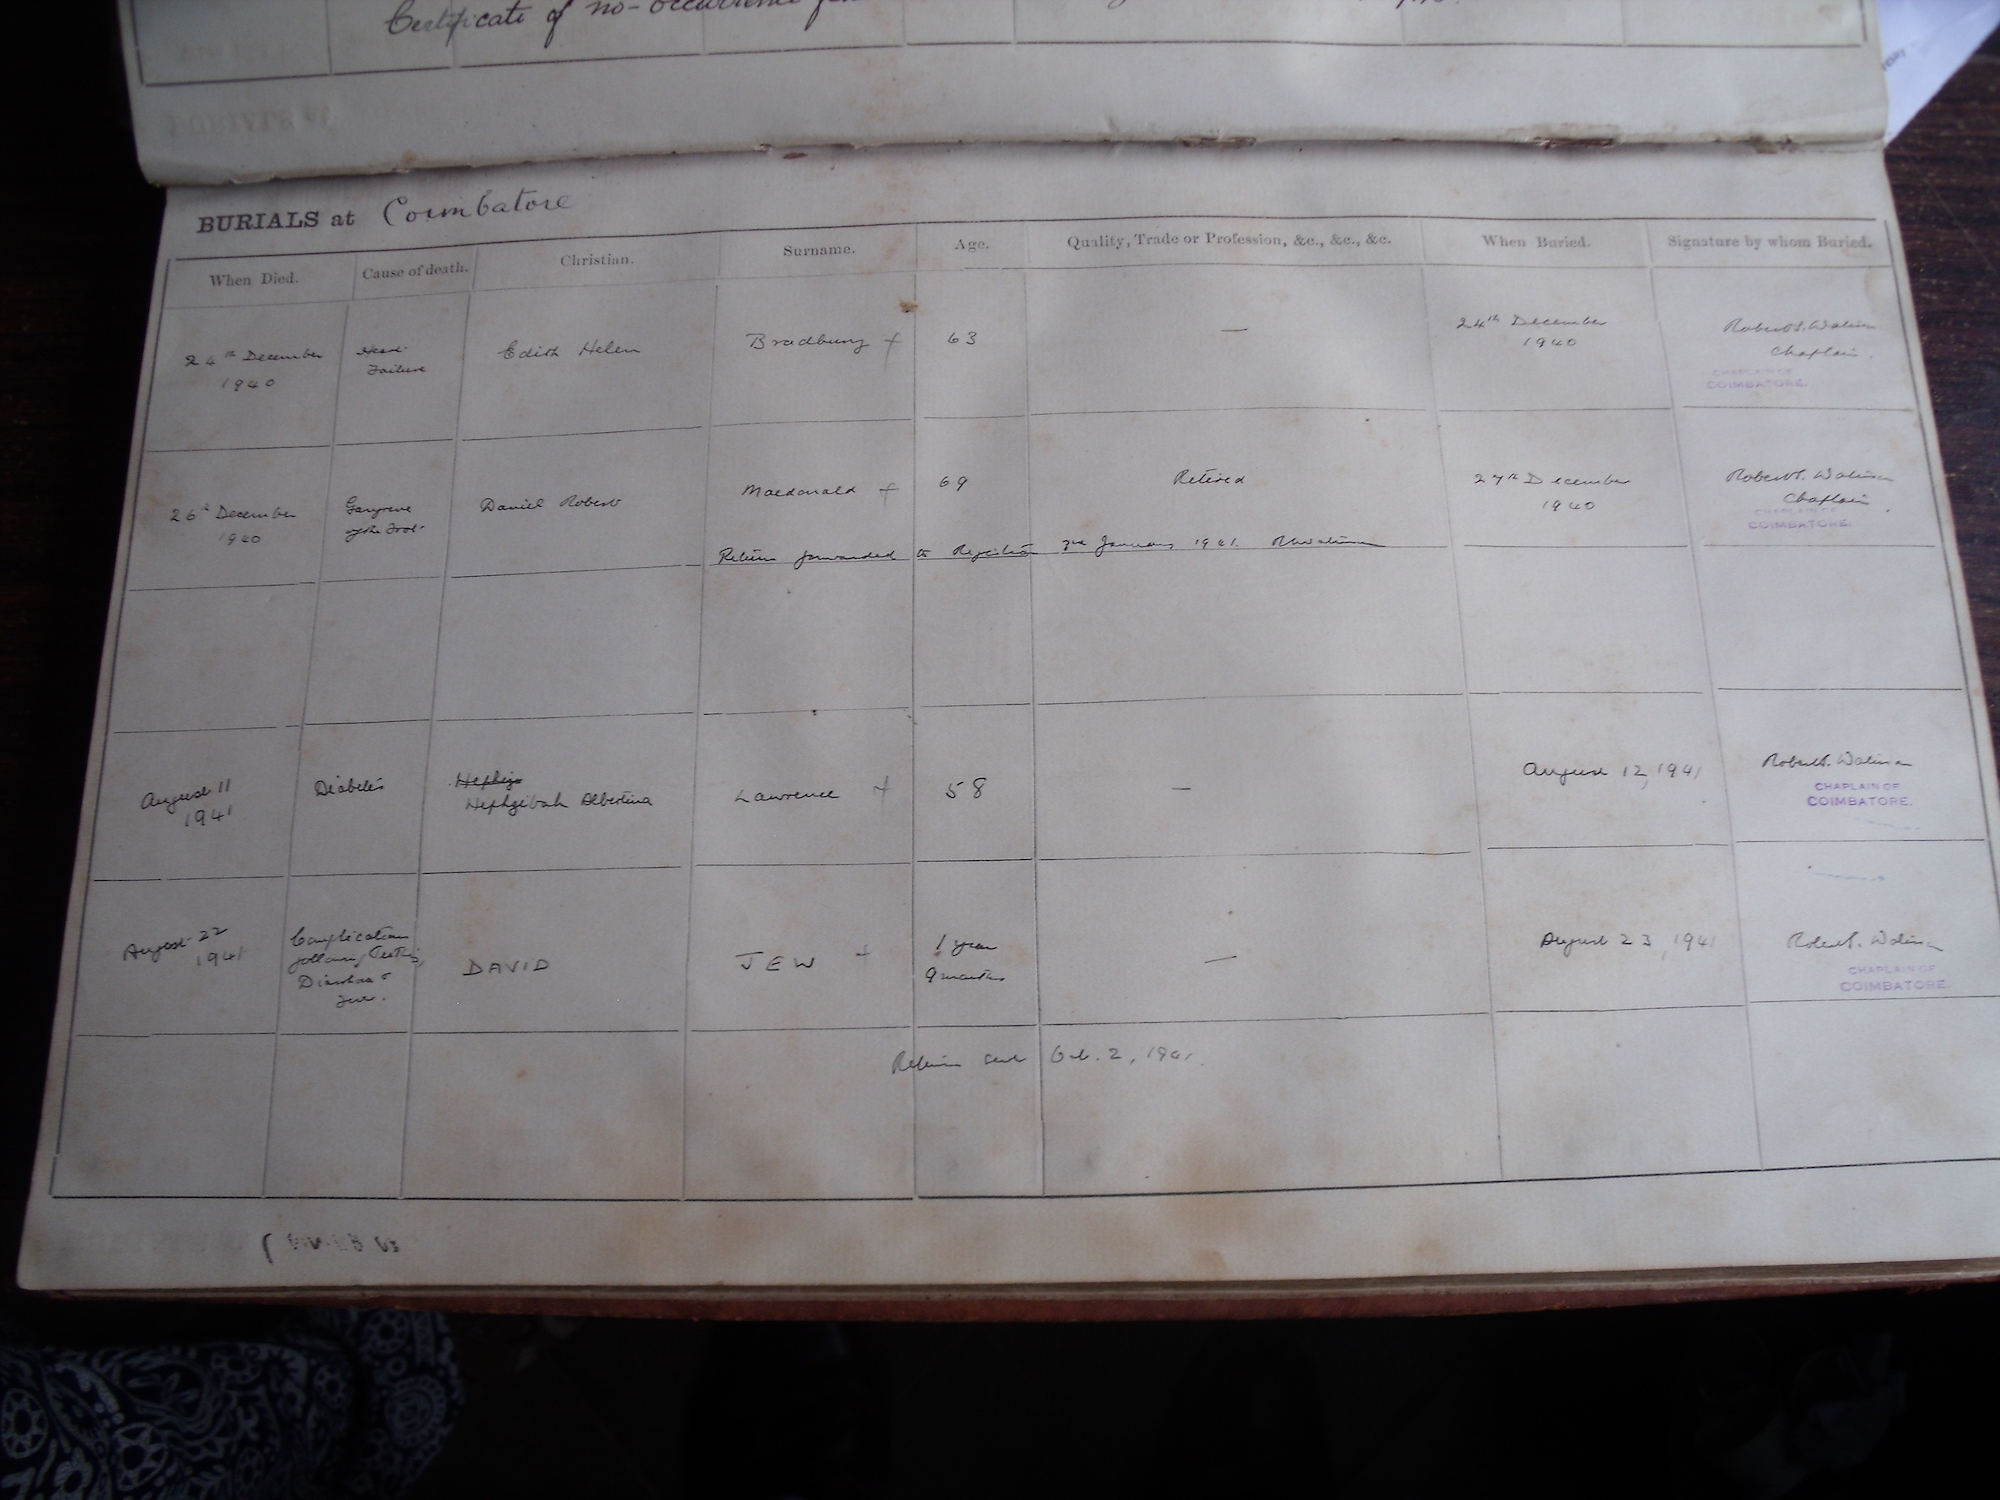 Certificate of no-occurrence
BURIALS at Coimbatore
When Died. Cause of death. Christian. Surname. Age. Quality, Trade or Profession, &c., &c., &c. When Buried. Signature by whom Buried.
24th December Heart Edith Helen Bradbury + 63 — 24th December Robert
1940 Failure 1940 Chaplain.
CHAPLAIN OF
COIMBATORE.
26th December Gangrene Daniel Robert Macdonald + 69 Retired 27th December Robert
1940 of the Foot 1940 Chaplain
CHAPLAIN OF
COIMBATORE.
Return forwarded to 3rd January 1941.
August 11 Diabetes Hephzi Lawrence + 58 — August 12, 1941 Robert
1941 Hephzibah Albertina
CHAPLAIN OF
COIMBATORE.
August 22 Complication DAVID JEW + 1 year — August 23, 1941 Robert
1941 following Teething, 9 months
Diarrhoea &
CHAPLAIN OF
COIMBATORE.
Return sent Oct. 2, 1941.